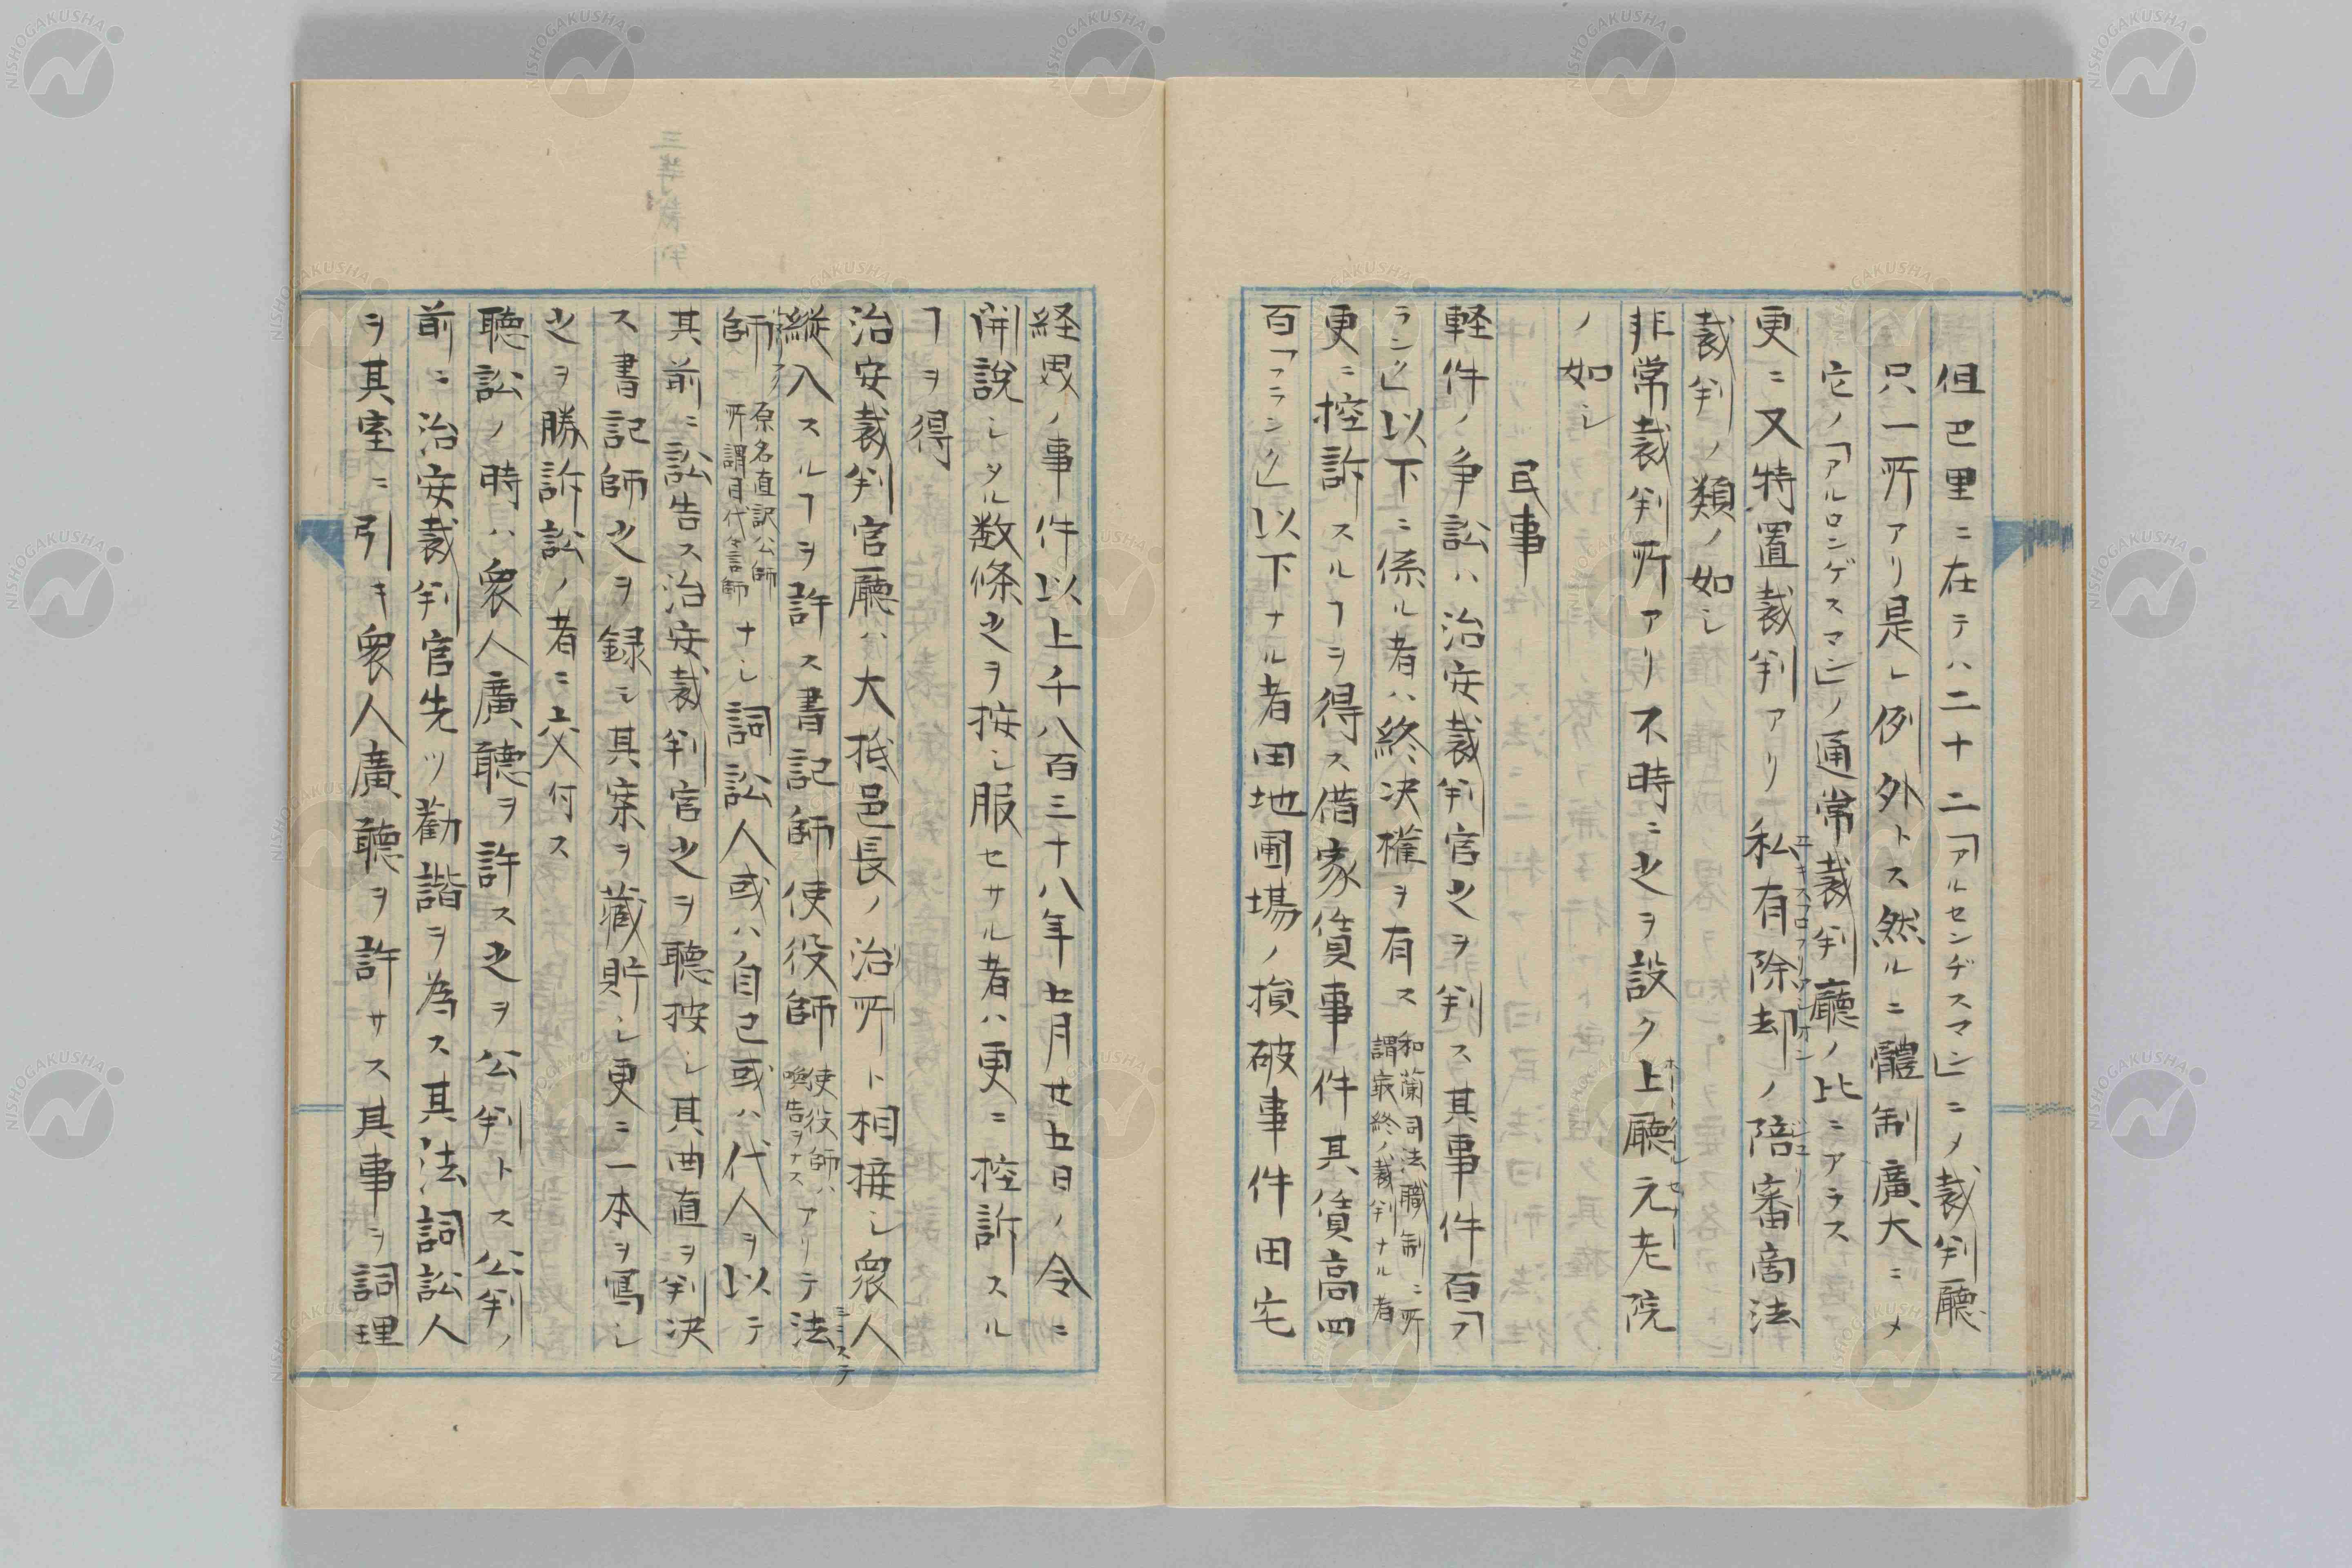 但巴里ニ在テハ二十二「アルセンヂスマン」ニノ裁判廳
只一所アリ是レ例外トス然ルニ體制廣大ニメ
它ノ「アルロンゲスマン」ノ通常裁判廳ノ比ニアラス
更ニ又特置裁判アリ私有除却ノ陪審商法
裁判ノ類ノ如シ
非常裁判所アリ不時ニ之ヲ設ク上廳元老院
ノ如シ
民事
軽件ノ争訟ハ治安裁判官之ヲ判ス其事件百「フ
ランク」以下ニ係ル者ハ終决權ヲ有ス和蘭司法職制ニ所謂最終ノ裁判ナル者
更ニ控訴スルヿヲ得ス借家賃事件其賃高四
百「フランク」以下ナル者田地圃場ノ損破事件田宅
経界ノ事件以上千八百三十八年五月廿五日ノ令ニ
開説シタル数條之ヲ按シ服セサル者ハ更ニ控訴スル
ヿヲ得
治安裁判官廳ハ大抵邑長ノ治所ト相接シ衆人
縦入スルヿヲ許ス書記師使役師使役師ハ喚告ヲナスアリテ法
師原名直訳公師所謂目代言師ナシ詞訟人或ハ自己或ハ代人ヲ以テ
其前ニ訟告ス治安裁判官之ヲ聴按シ其曲直ヲ判决
ス書記師之ヲ録シ其案ヲ藏貯シ更ニ一本ヲ寫シ
之ヲ勝訴訟ノ者ニ交付ス
聴訟ノ時ハ衆人廣聴ヲ許ス之ヲ公判トス公判ノ
前ニ治安裁判官先ツ勸諧ヲ為ス其法詞訟人
ヲ其室ニ引キ衆人廣聴ヲ許サス其事ヲ詞理
NISHOGAKUSHA